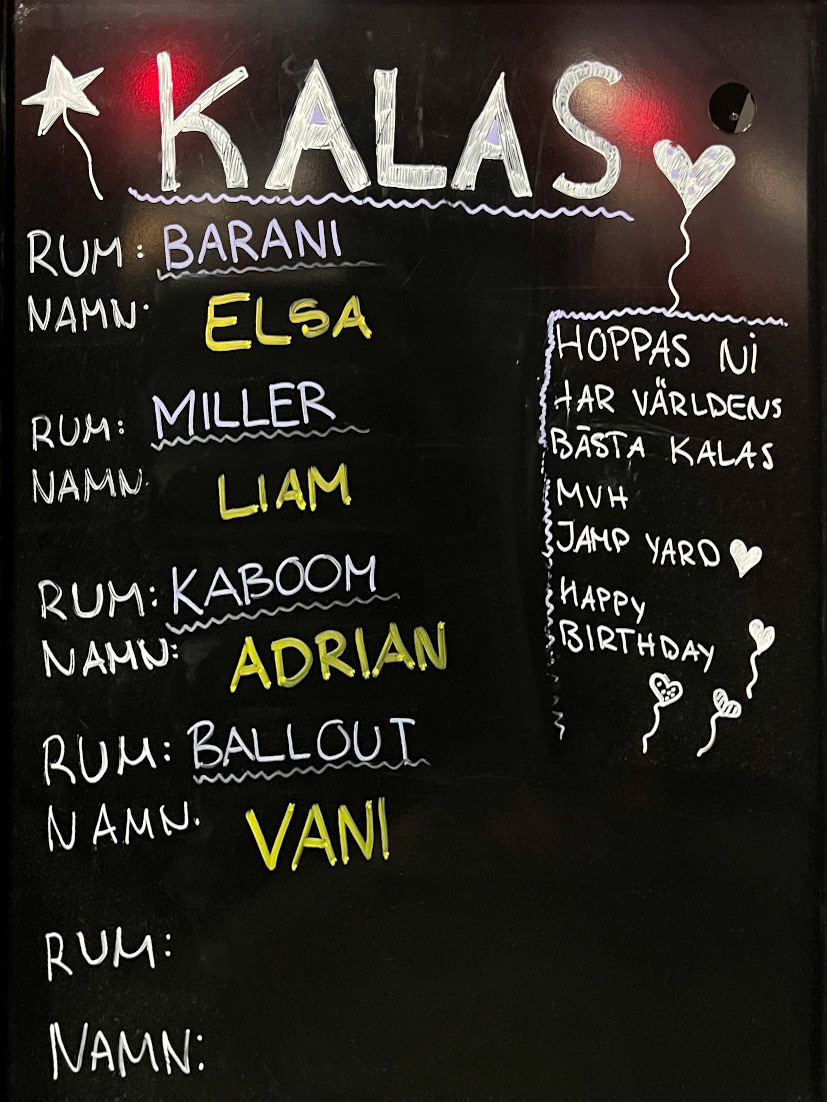 KALAS
RUM: BARANI
NAMN: ELSA
RUM: MILLER
NAMN: LIAM
RUM: KABOOM
NAMN: ADRIAN
RUM: BALLOUT
NAMN: VANI
RUM:
NAMN:
HOPPAS NI
HAR VÄRLDENS
BÄSTA KALAS
MVH
JAMP YARD
HAPPY
BIRTHDAY